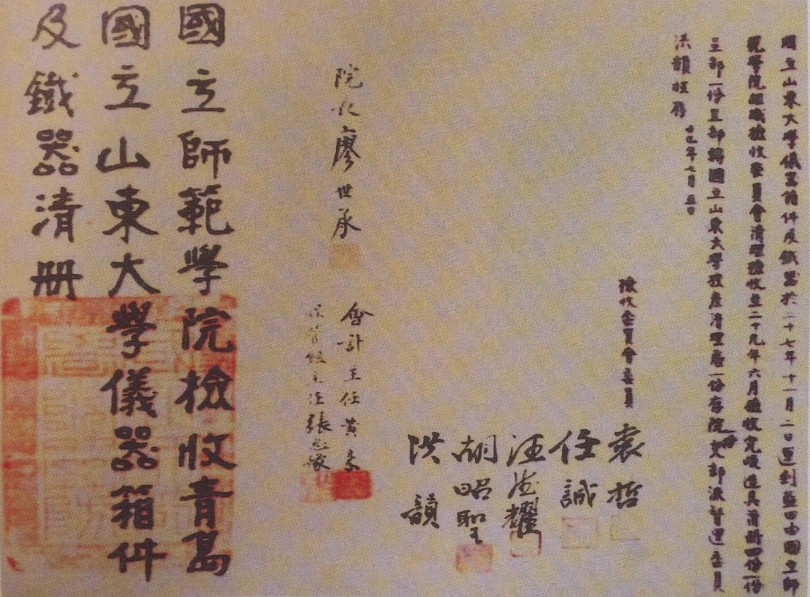 國立山東大學儀器箱件及鐵器於二十七年十一月二日運到藍田由國立師
範學院組織檢收委員會清理檢收至二十九年六月檢收完竣造具清冊四份一份
呈部一份呈部轉國立山東大學校產清理處一份存院一份交部派督運委員
洪韻
廿九年七月五日
檢收委員會委員 袁哲
任誠
汪德耀
胡昭聖
洪韻
會計主任黃
保管組主任張
院長廖世承
國立師範學院檢收青島
國立山東大學儀器箱件
及鐵器清冊